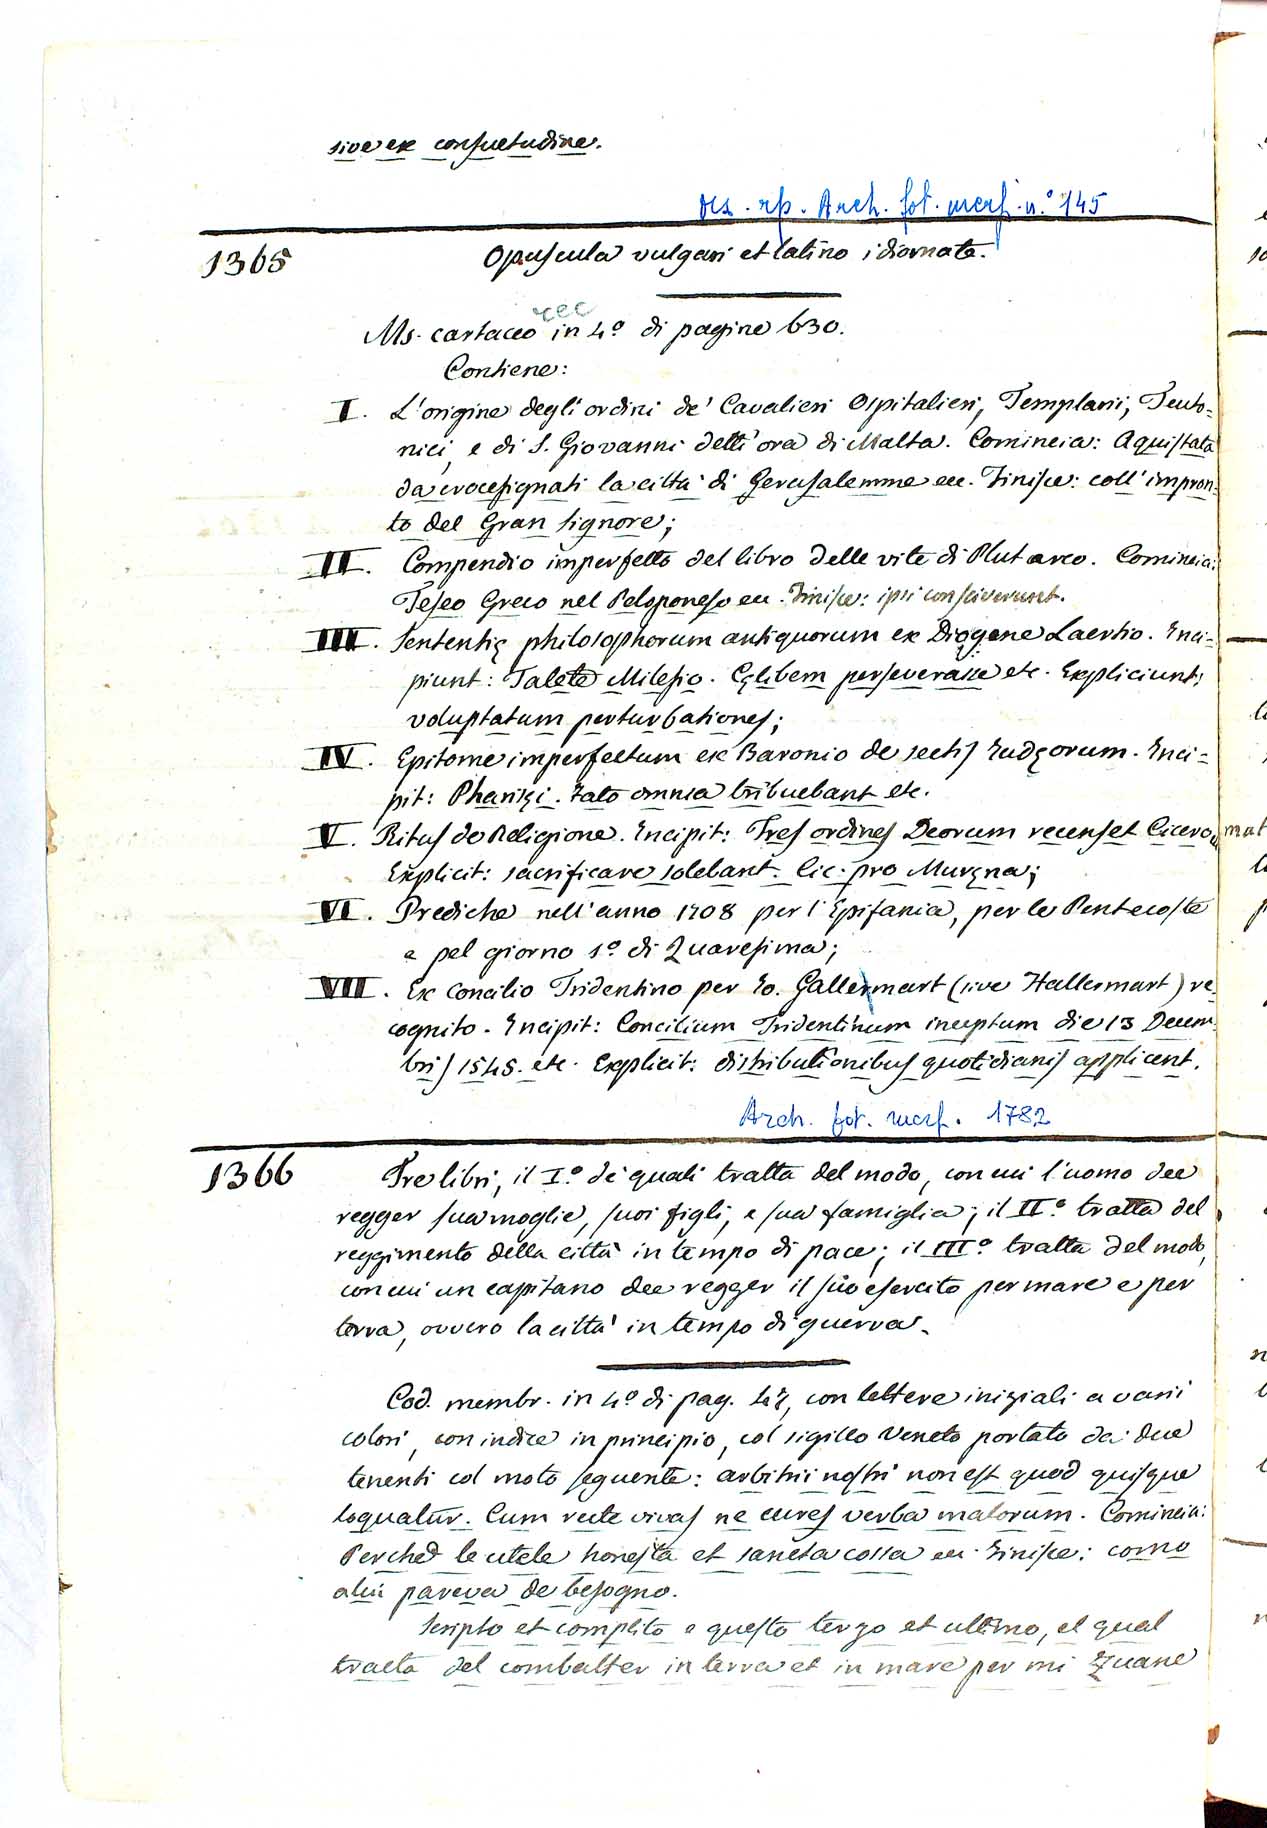 sive ex consuetudine.
des. rp. Arch. fot. merf. n.° 145
1365 Opuscula vulgari et latino idiomate.
rec
Ms. cartaceo in 4.° di pagine 630.
Contiene:
I. L'origine degli ordini de' Cavalieri Ospitalieri, Templarii, Teuto=
nici, e di S. Giovanni detti ora di Malta. Comincia: Aquistata
da crocesignati la città di Gerusalemme ec. Finisce: coll'impron-
to del Gran Signore;
II. Compendio imperfetto del libro delle vite di Plutarco. Comincia:
Teseo Greco nel Peloponeso ec. Finisce: ipsi consciverunt.
III. Sententię philosophorum antiquorum ex Diogene Laertio. Inci=
piunt: Talete Milesio. Cęlibem perseverasse etc. Expliciunt:
voluptatum perturbationes;
IV. Epitome imperfectum ex Baronio de sectis Iudęorum. Inci=
pit: Pharisęi. Fato omnia tribuebant etc.
V. Ritus de Religione. Incipit: Tres ordines Deorum recenset Cicero
Explicit: sacrificare solebant. Cic. pro Muręna;
VI. Prediche nell'anno 1708 per l'Epifania, per le Pentecoste
e pel giorno 1.° di Quaresima;
VII. Ex Concilio Tridentino per Io. Gallemart (sive Hallermart) re-
cognito. Incipit: Concilium Tridentinum inceptum die 13 Decem-
bris 1545. etc. Explicit: distributionibus quotidianis applicent.
Arch. fot. merf. 1782
1366 Tre libri, il I.° de' quali tratta del modo, con cui l'uomo dee
regger sua moglie, suoi figli, e sua famiglia; il II.° tratta del
reggimento della città in tempo di pace; il III.° tratta del modo,
con cui un capitano dee regger il suo esercito per mare e per
terra, ovvero la città in tempo di guerra.
Cod. membr. in 4.° di pag. , con lettere iniziali a varii
colori, con indice in principio, col sigillo Veneto portato da due
tenenti col moto seguente: arbitrii nostri non est quod quisque
loquatur. Cum recte vivas ne cures verba malorum. Comincia:
Perchè le utele honesta et sancta cossa ec. Finisce: como
alui pareva de besogno.
Scripto et complito e questo terzo et ultimo, el qual
tracta del combatter in terra et in mare per mi Zuane